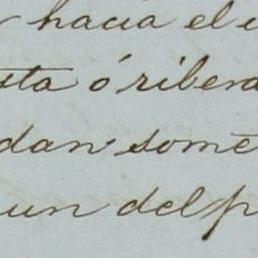 hacia el
sta ó ribera
dan some
un del p